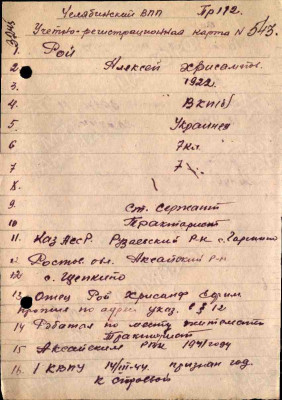 Челябинский ВПП Пр 112.
Учетно-регистрационная карта N 543.
1. Рой
2 Алексей Хрисанфов.
3. 1922.
4. ВКП(б)
5. Украинец
6 7 кл.
7 7
8.
9. Ст. Сержант
10 Тракторист
11. Каз АССР. Рузаевский Р-н с.
12 Ростов. обл. Аксайский р-н
12 с. Щепкино
13 Отец Рой Хрисанф Ефим.
прожив по адрес указ. в § 12
14 Работал по месту жительства
Тракторист
15 Аксайским РВК 1941 году
16. 1 КВПУ 14/III-44. признан год.
к строевой